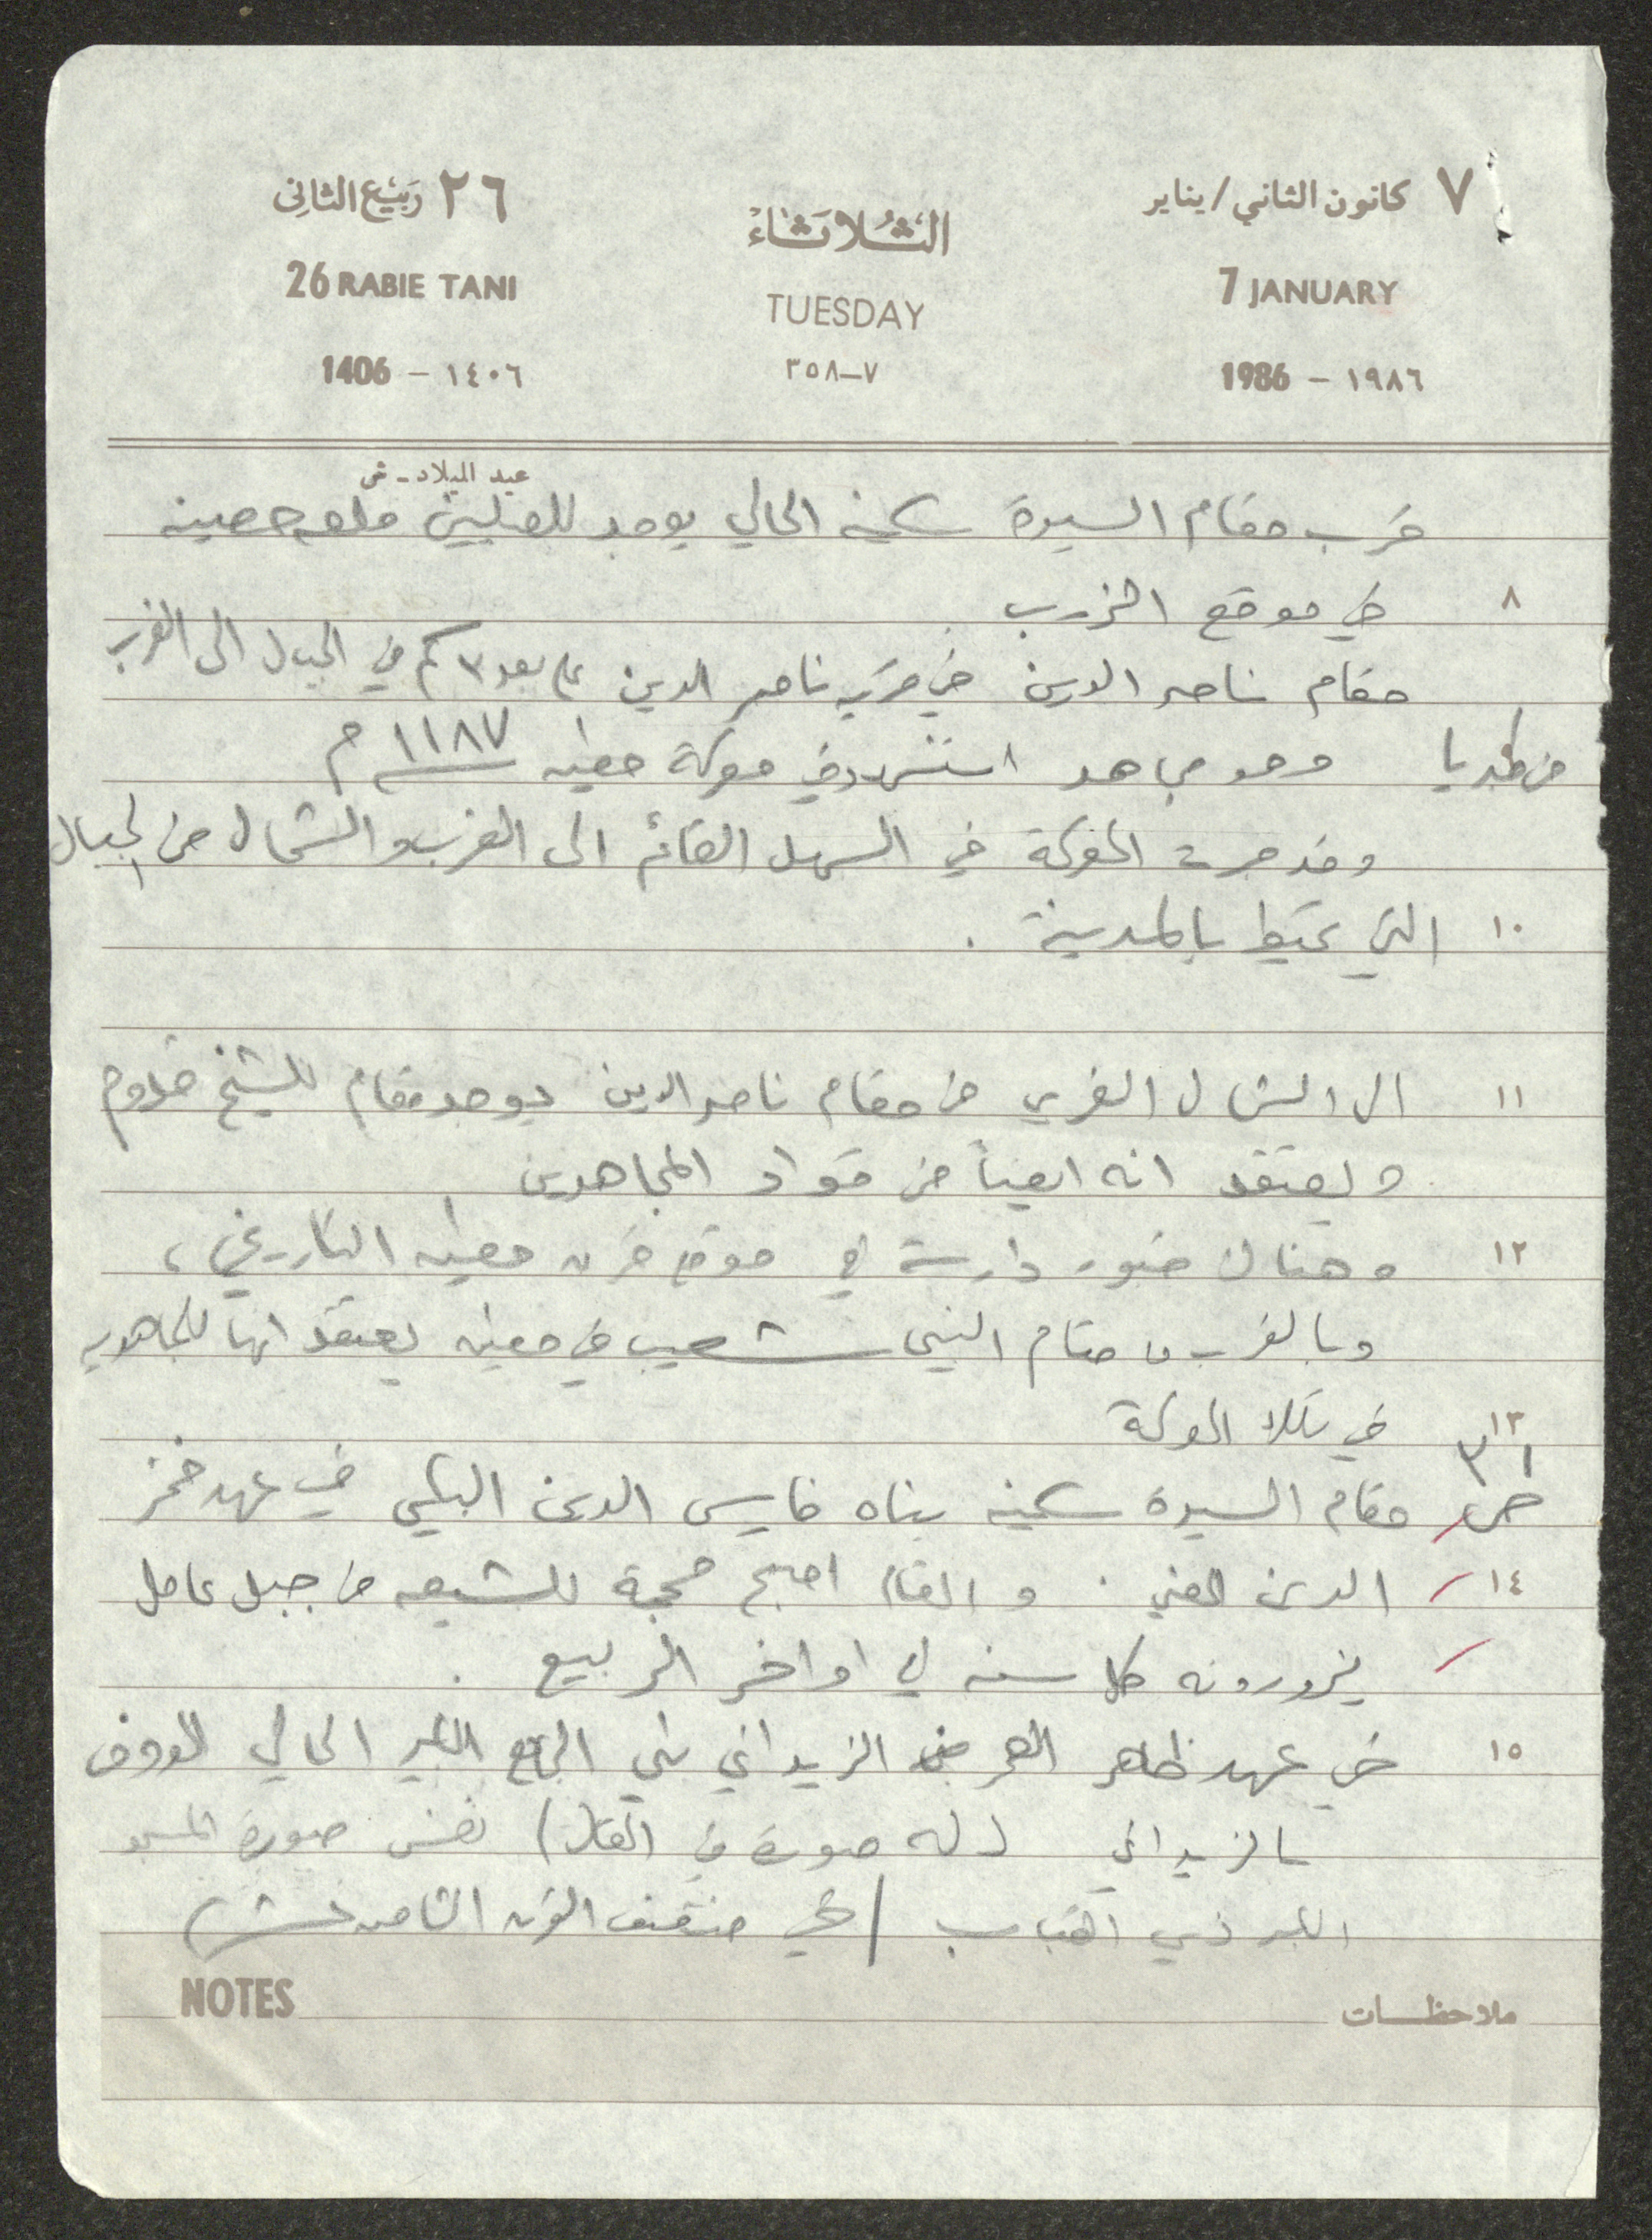 ٧ كانون الثاني/يناير
الثلاثاء
٢٦ ربيع الثاني
7 JANUARY
TUESDAY
26 RABIE TANI
١٩٨٦ - 1986
٧-٣٥٨
١٤٠٦ - 1406
عيد الميلاد - ش
قرب مقام السيدة سكينة الحالي يوجد للصليبيين قلعه حصينه
٨ في موقع الزرب
مقام ناصر الدين في قرية ناصر الدين على بعد ٣ كم في الجبال الى الغرب
من طبريا وهو مجاهد استشهد في معركة حطين ١١٨٧ م
وقد جرت المعركة في السهل القائم الى الغرب والشمال من الجبال
١٠ التي تحيط بالمدينة .
١١ الى الشمال الغربي من مقام ناصر الدين يوجد مقام للشيخ قدوم
ويعتقد انه ايضاً من قواد المجاهدين
١٢ وهناك قبور دارسة في موقع قرن حطين التاريخي ،
وبالقرب من مقام النبي شعيب في حطين يعتقد انها للمجاهدين
١٣ في تلك المعركة
٣١
ص مقام السيدة سكينة بناه فارس الدين البكي في عهد فخر
١٤ الدين المعني . والمقام اصبح محجة للشيعه من جبل عامل
يزورونه كل سنه في اواخر الربيع .
١٥ في عهد ظاهر العمر الزيداني بني الجامع الكبير الحالي المعروف
بالزيداني ( له صورة في المقال ) نفس صورة المسجد
الكبير ذي القباب / في منتصف القرن الثامن عشر )
NOTES
ملاحظات